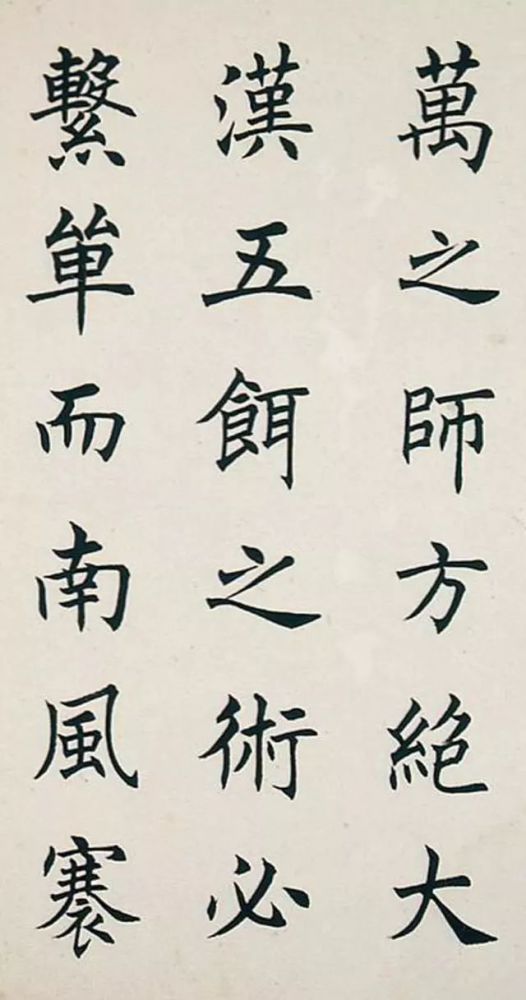 萬之師方絕大
漢五餌之術必
繫單而南風褰